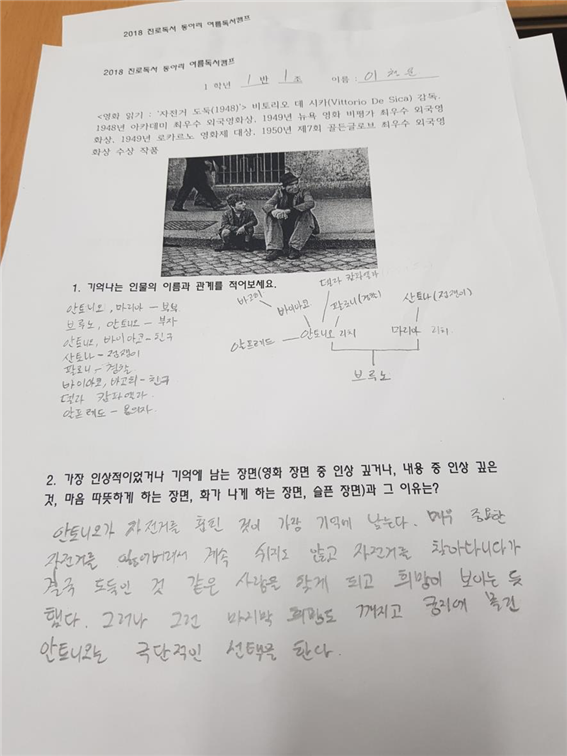 2018 진로독서 동아리 여름독서캠프
2018 진로독서 동아리 여름독서캠프
1 학년 1 반 1 조 이름 : 이
<영화 읽기 : '자전거 도둑(1948)'> 비토리오 데 시카(Vittorio De Sica) 감독.
1948년 아카데미 최우수 외국영화상, 1949년 뉴욕 영화 비평가 최우수 외국영
화상, 1949년 로카르노 영화제 대상, 1950년 제7회 골든글로브 최우수 외국영
화상 수상 작품
1. 기억나는 인물의 이름과 관계를 적어보세요.
안토니오, 마리아 - 부부
브루노, 안토니오 - 부자
안토니오, 바이아코 - 친구
산토나 - 점쟁이
팔로니 - 경찰
바이아요, 바고히 - 친구
델라 캄파엘라
알프레드 - 용의자
바고히
바이아요
델라 캄파넬라
팔로니(경찰)
산토나(점쟁이)
알프레드
안토니오 리치
마리아 리치
브루노
2. 가장 인상적이었거나 기억에 남는 장면(영화 장면 중 인상 깊거나, 내용 중 인상 깊은
것, 마음 따뜻하게 하는 장면, 화가 나게 하는 장면, 슬픈 장면)과 그 이유는?
안토니오가 자전거를 훔친 것이 가장 기억에 남는다. 매우 중요한
자전거를 잃어버려서 계속 쉬지도 않고 자전거를 찾아다니다가
결국 도둑인 것 같은 사람을 찾게 되고 희망이 보이는 듯
했다. 그러나 그런 마지막 희망도 꺼지고 궁지에 몰린
안토니오는 극단적인 선택을 한다.